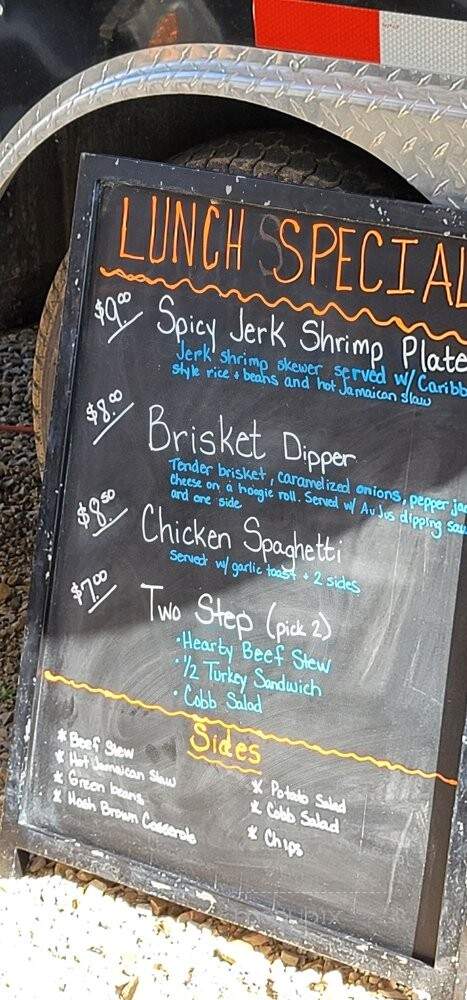 LUNCH SPECIAL
$9.00 Spicy Jerk Shrimp Plate
Jerk shrimp skewer served w/ Caribb
style rice + beans and hot Jamaican slaw
$8.00 Brisket Dipper
Tender brisket, caramelized onions, pepper jac
cheese on a hoagie roll. Served w/ Au Jus dipping sau
and one side
$8.50 Chicken Spaghetti
Served w/ garlic toast + 2 sides
$7.00 Two Step (pick 2)
• Hearty Beef Stew
• 1/2 Turkey Sandwich
• Cobb Salad
Sides
* Beef Stew
* Hot Jamaican Slaw
* Green beans
* Hash Brown Casserole
* Potato Salad
* Cobb Salad
* Chips